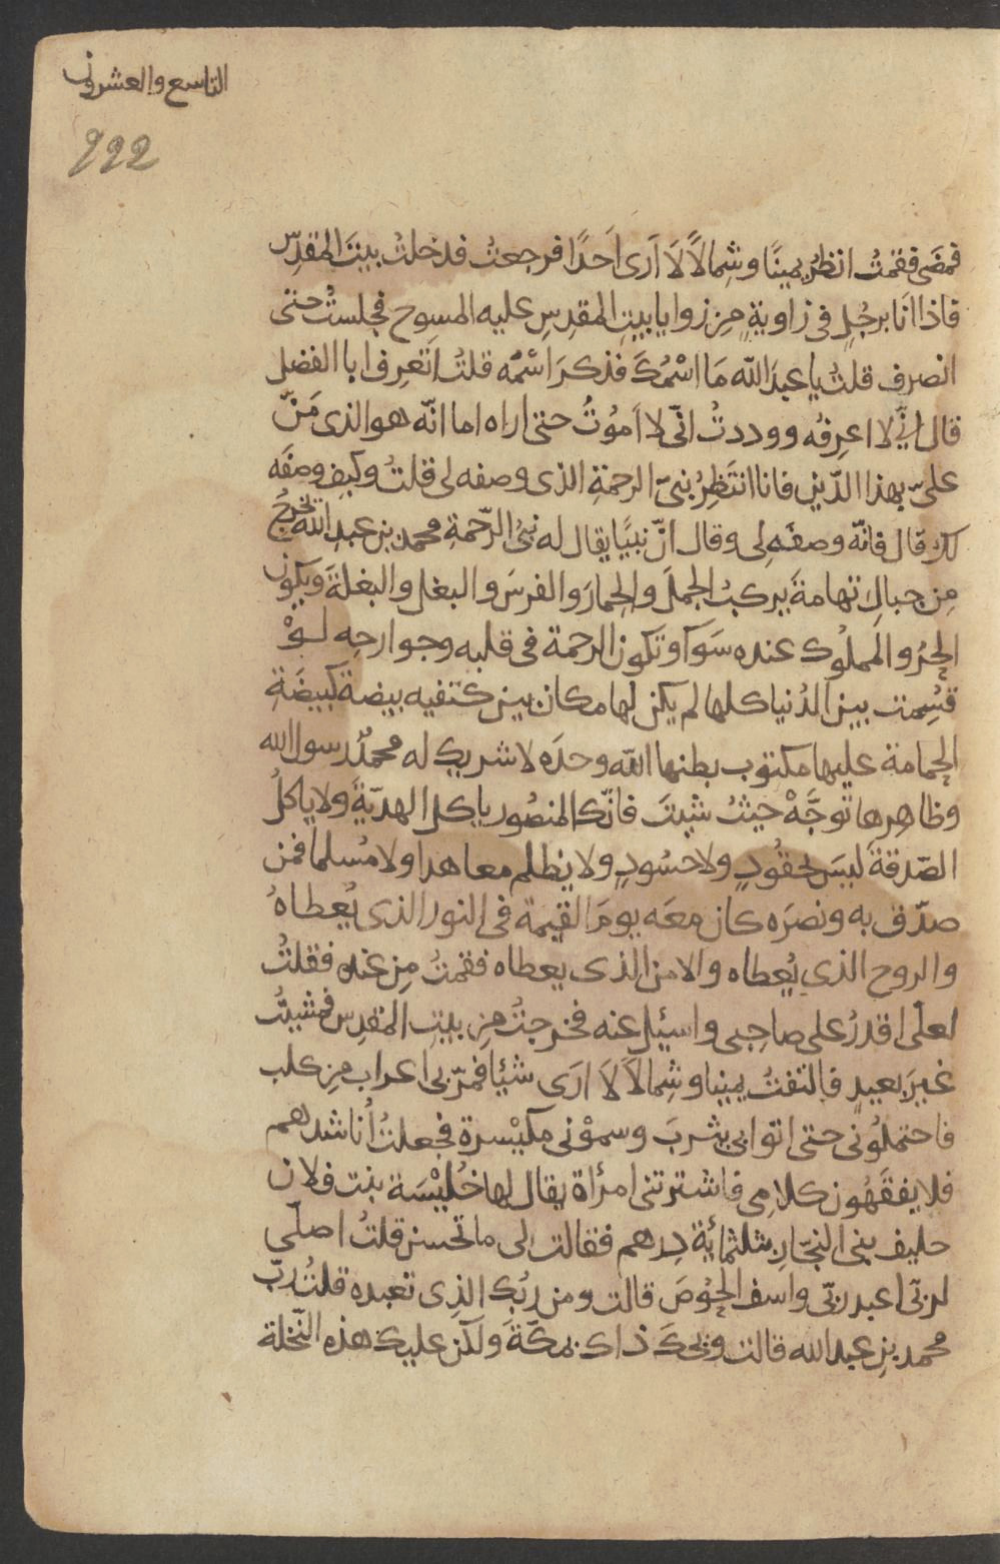 التاسع والعشرون
222
فمضى فقمتُ انظرُ يمينًا وشِمالًا لَا اَرى اَحدًا فرجعتُ فدخلتُ بيتَ المقدِس
فاذا انَا برجُلٍ فى زاويةٍ مِن زوايا بيتِ المقدِسِ عليه المسوح فجلستُ حتى
انصرف قلتُ يا عبدَ اللّه مَا اسْمُكَ فذكرَ اسْمُه قلتُ اَتَعرِف ابا الفضل
قال انّى لا اعرِفُه ووددتُ انّى لا اَموُتُ حتى اراه اما انّه هو الذى مَنّ
علىّ بهذا الدّين فانا انتَظِرُ نبىّ الرحمةِ الذى وصفه لى قلتُ وكيف وصفَه
لك قال فانّه وصفَه لِى وقال انّ نبيًا يقال له نبىُّ الرّحمةِ محمد بن عبدِ الله يخرجُ
مِن جبالِ تهامةَ يركبُ الجملَ والحمارَ والفرسَ والبغل والبغلةَ ويكون
الحُرُّ والمملُوك عنده سَوَآء وتكون الرحمة فى قلبه وجوارحِه لــوْ
قسُِمت بين الدُنيا كلها لم يكن لها مكان بين كتفيه بيضة كبيضَةِ
الحمامة عليها مكتوب بطنها اللّه وحدَه لا شريك له محمدٌ رسول الله
وظاهرها توجَّهْ حيثُ شيتَ فانّك المنصُور ياكل الهديّةَ ولا ياكلُ
الصّدقةَ ليسَ لحقُودٍ ولا حسُودٍ ولا يظلم معاهدا ولا مُسلما فمن
صدّق به ونصرَه كان معَه يومَ القيمة فى النور الذى يُعطاهُ
والروح الذى يُعطاه والامن الذى يعطاه فقمتُ مِن عنده فقلتُ
لعلّى اقدرُ على صاحِبى واسيئل عنه فخرجتُ مِن بيتِ المقدِس فمشيتُ
غيرَ بعيدٍ فالتفتُ يمينا وشِمالًا لَا ارَى شيئًا فمرّ بى اعراب مِن كلب
فاحتملُونى حتى اتوا بى يثربَ وسموْنى مَيْسرة فجعلتُ اُناشدهم
فلا يفقَهُون كلامِى فاشترتنى امرأة يقال لها خُليْسَة بنت فلان
حليف بنى النجّارِ بثلثمائةِ دِرهم فقالت لى ما تحسنُ قلتُ اصلّى
لربّى اعبد ربّى واَسف الخُوصَ قالت ومن ربُّك الذى تعبده قلتُ ربّ
محمد بنِ عبد الله قالت ويحكَ ذاك بمكّةَ ولكن عليك هذه النّخلة